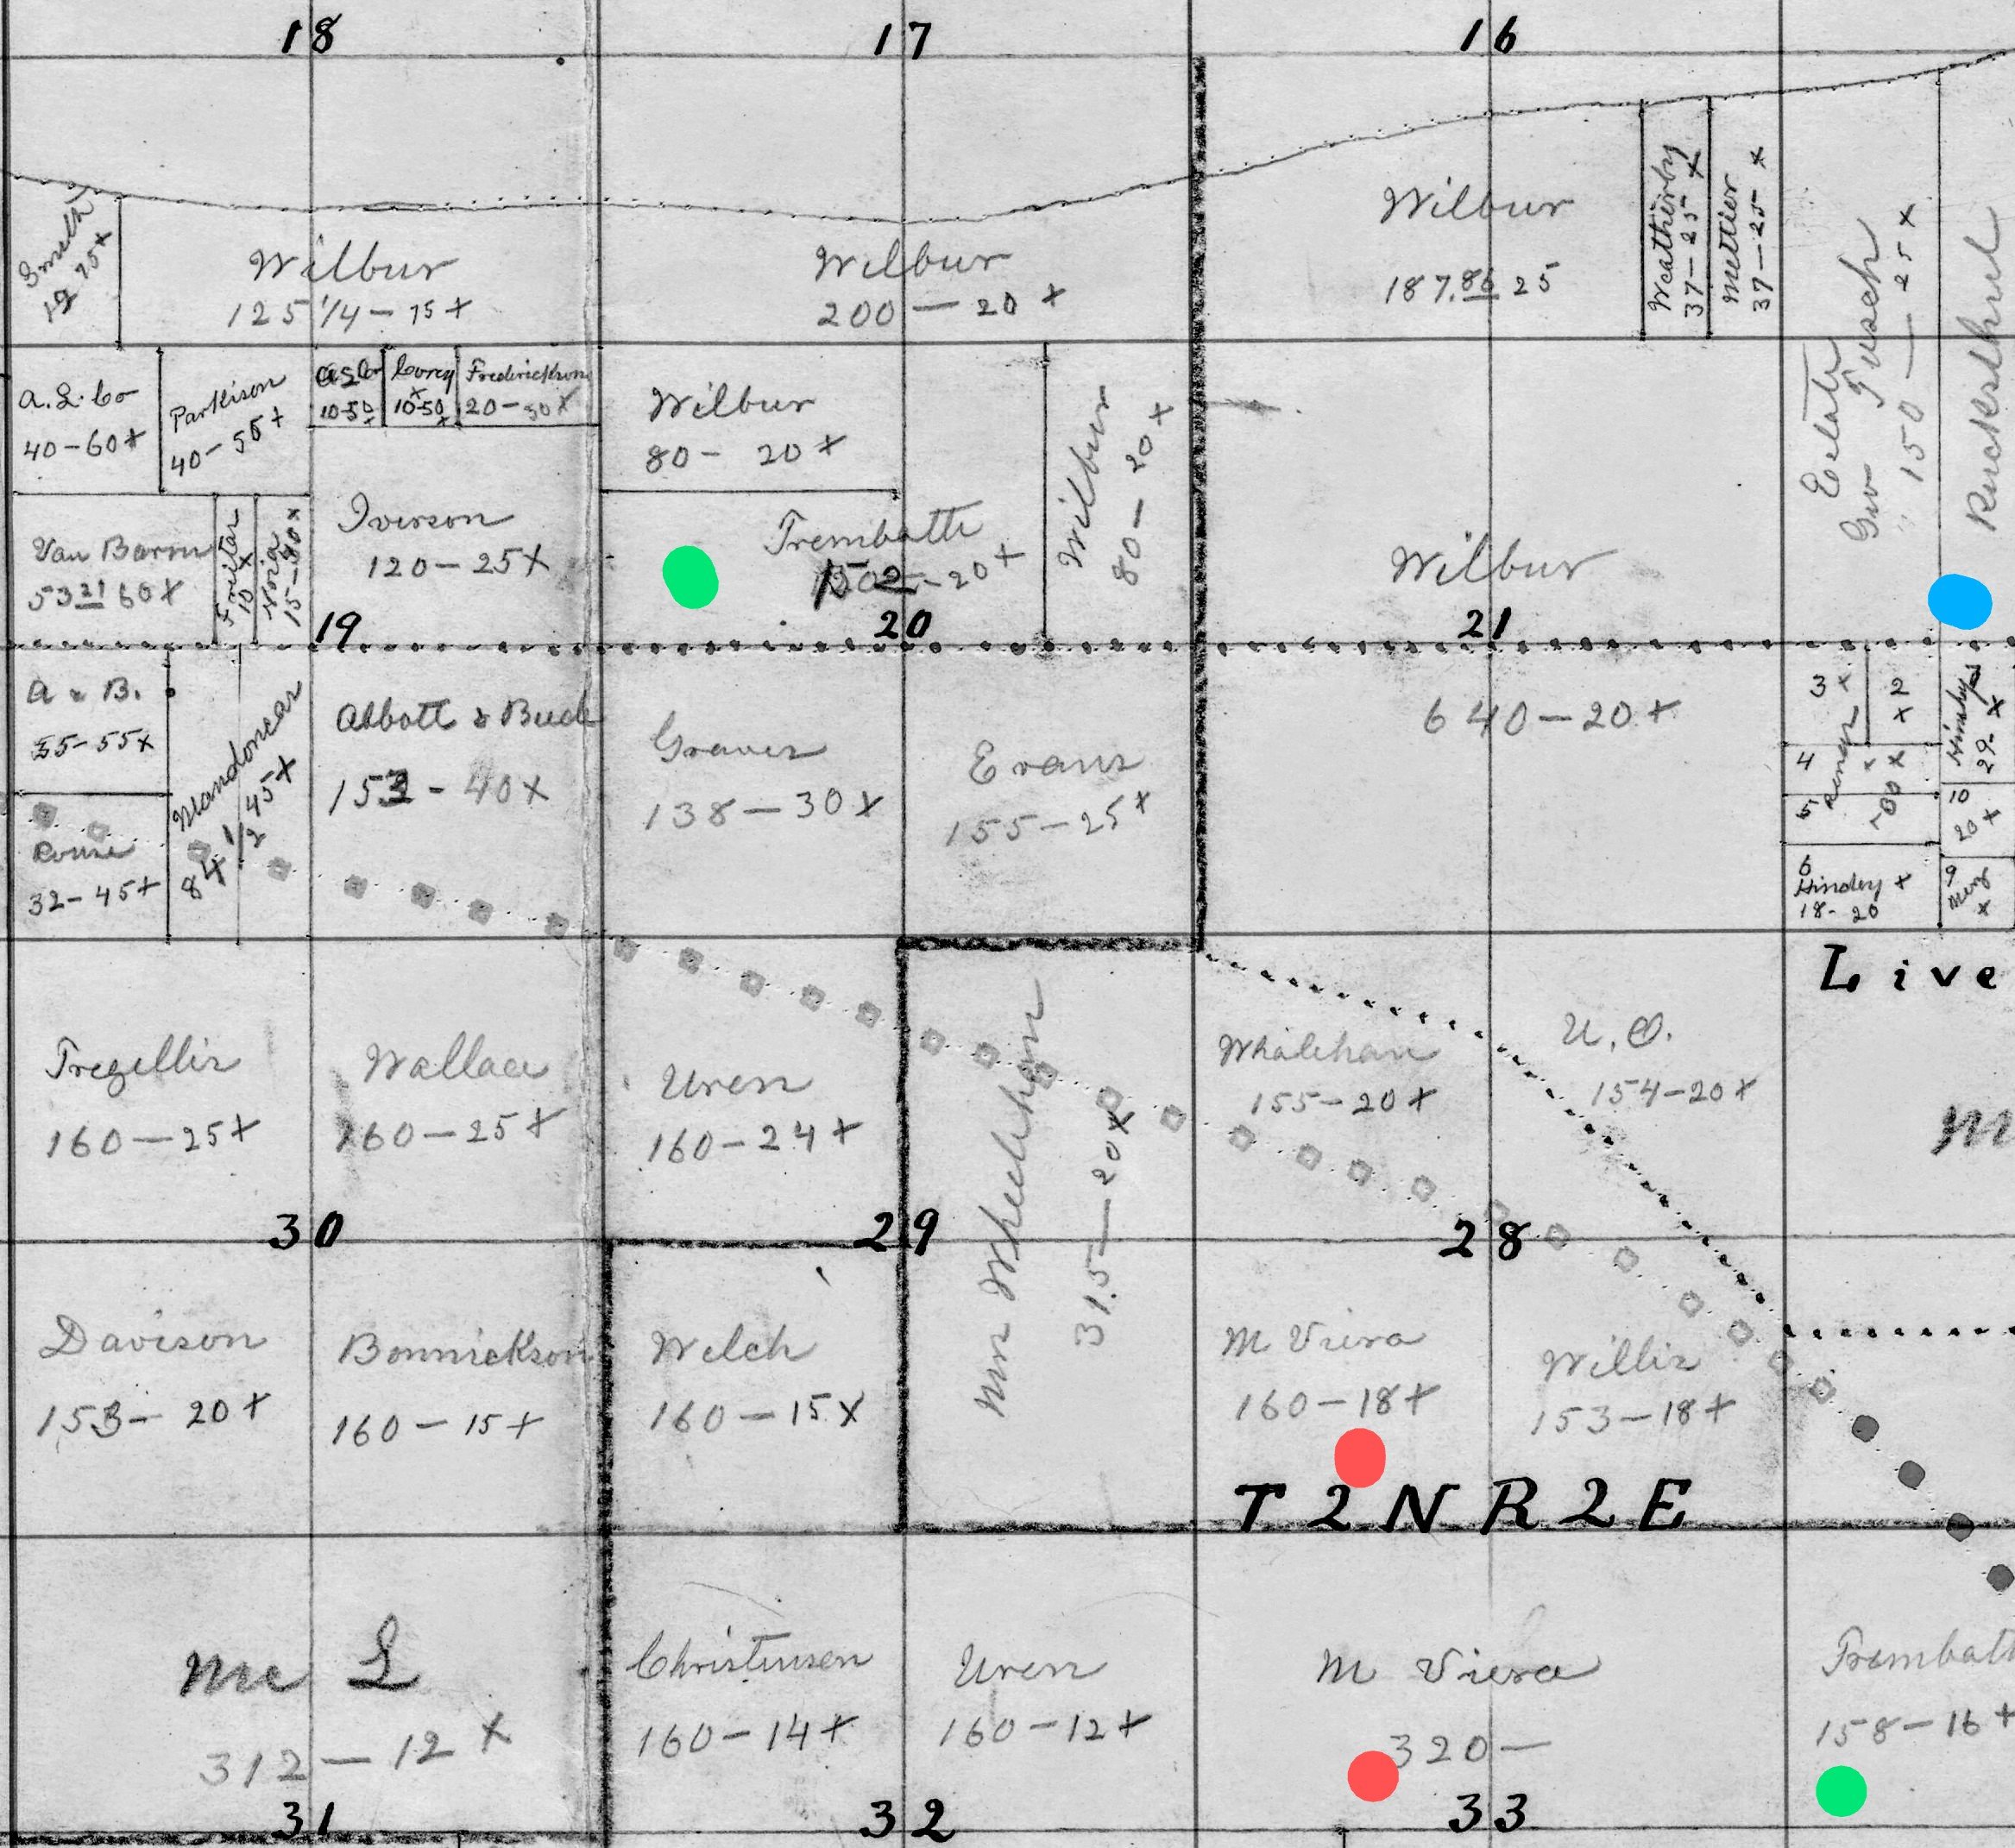 18
17
16
Smith
19 25x
Wilbur
125 1/4 - 15 +
Wilbur
200 - 20 x
Wilbur
187.86 25
Weatherby
37 - 25 x
Mettier
37 - 25 x
Estate
Geo Tusch
" 150 - 25 x
A. L. Co
40 - 60 +
Parkison
40 - 55 +
10-50
Corey x
10-50
Fredrickson
20 - 50 x
Wilbur
80 - 20 x
Wilbur
80 - 20 x
Van Baren
53 21 60 x
Freitas
10 x
Noia
15 - 80 x
Iverson
120 - 25 x
Trembath
- 20 x
Wilbur
19
20
21
640 - 20 x
A & B.
55 - 55 x
Mandonear
84 1/2 45 x
Abbott & Buck
153 - 40 x
Graves
138 - 30 x
Evans
155 - 25 x
Rouse
32 - 45 +
3 x
2 x
4
5
6
Hindey x
18 - 20
29 - x
10
20 x
9
x
Live
Tregellis
160 - 25 +
Wallace
160 - 25 x
Uren
160 - 24 +
Mrs Whelehan
315 - 20 x
Whalehan
155 - 20 x
U. O.
154 - 20 x
M
30
29
28
Davison
153 - 20 +
Bonnickson
160 - 15 +
Welch
160 - 15 x
M Viera
160 - 18 +
Willis
153 - 18 +
T 2 N R 2 E
Mc L
312 - 12 x
Christensen
160 - 14 +
Uren
160 - 12 +
M Viera
320 -
Trembath
158 - 16 +
31
32
33